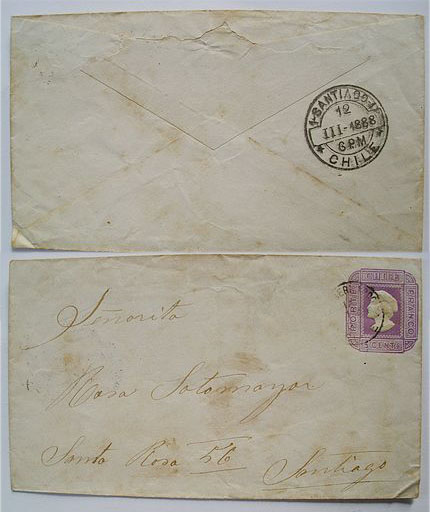 1-SANTIAGO-1
12
III-1888
6 PM
* CHILE *
PORTE
FRANCO
5 CENTS
Señorita
Rosa Sotomayor
Santa Rosa 56
Santiago